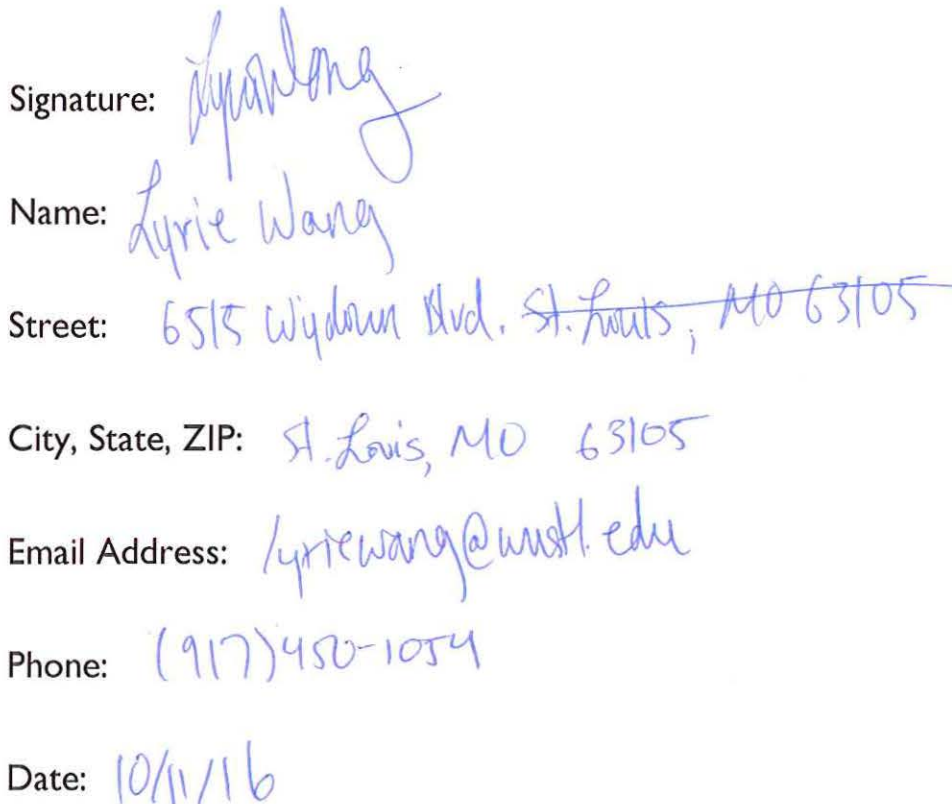 Signature:
Name: Lyrie Wang
Street: 6515 Wydown Blvd. St. Louis, MO 63105
City, State, ZIP: St. Louis, MO 63105
Email Address: lyriewang@wustl.edu
Phone: (917)450-1054
Date: 10/11/16